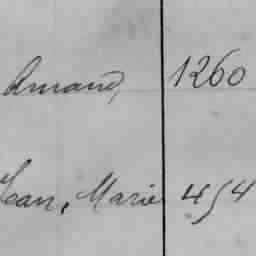 Armand, 1260
Jean, Marie 454